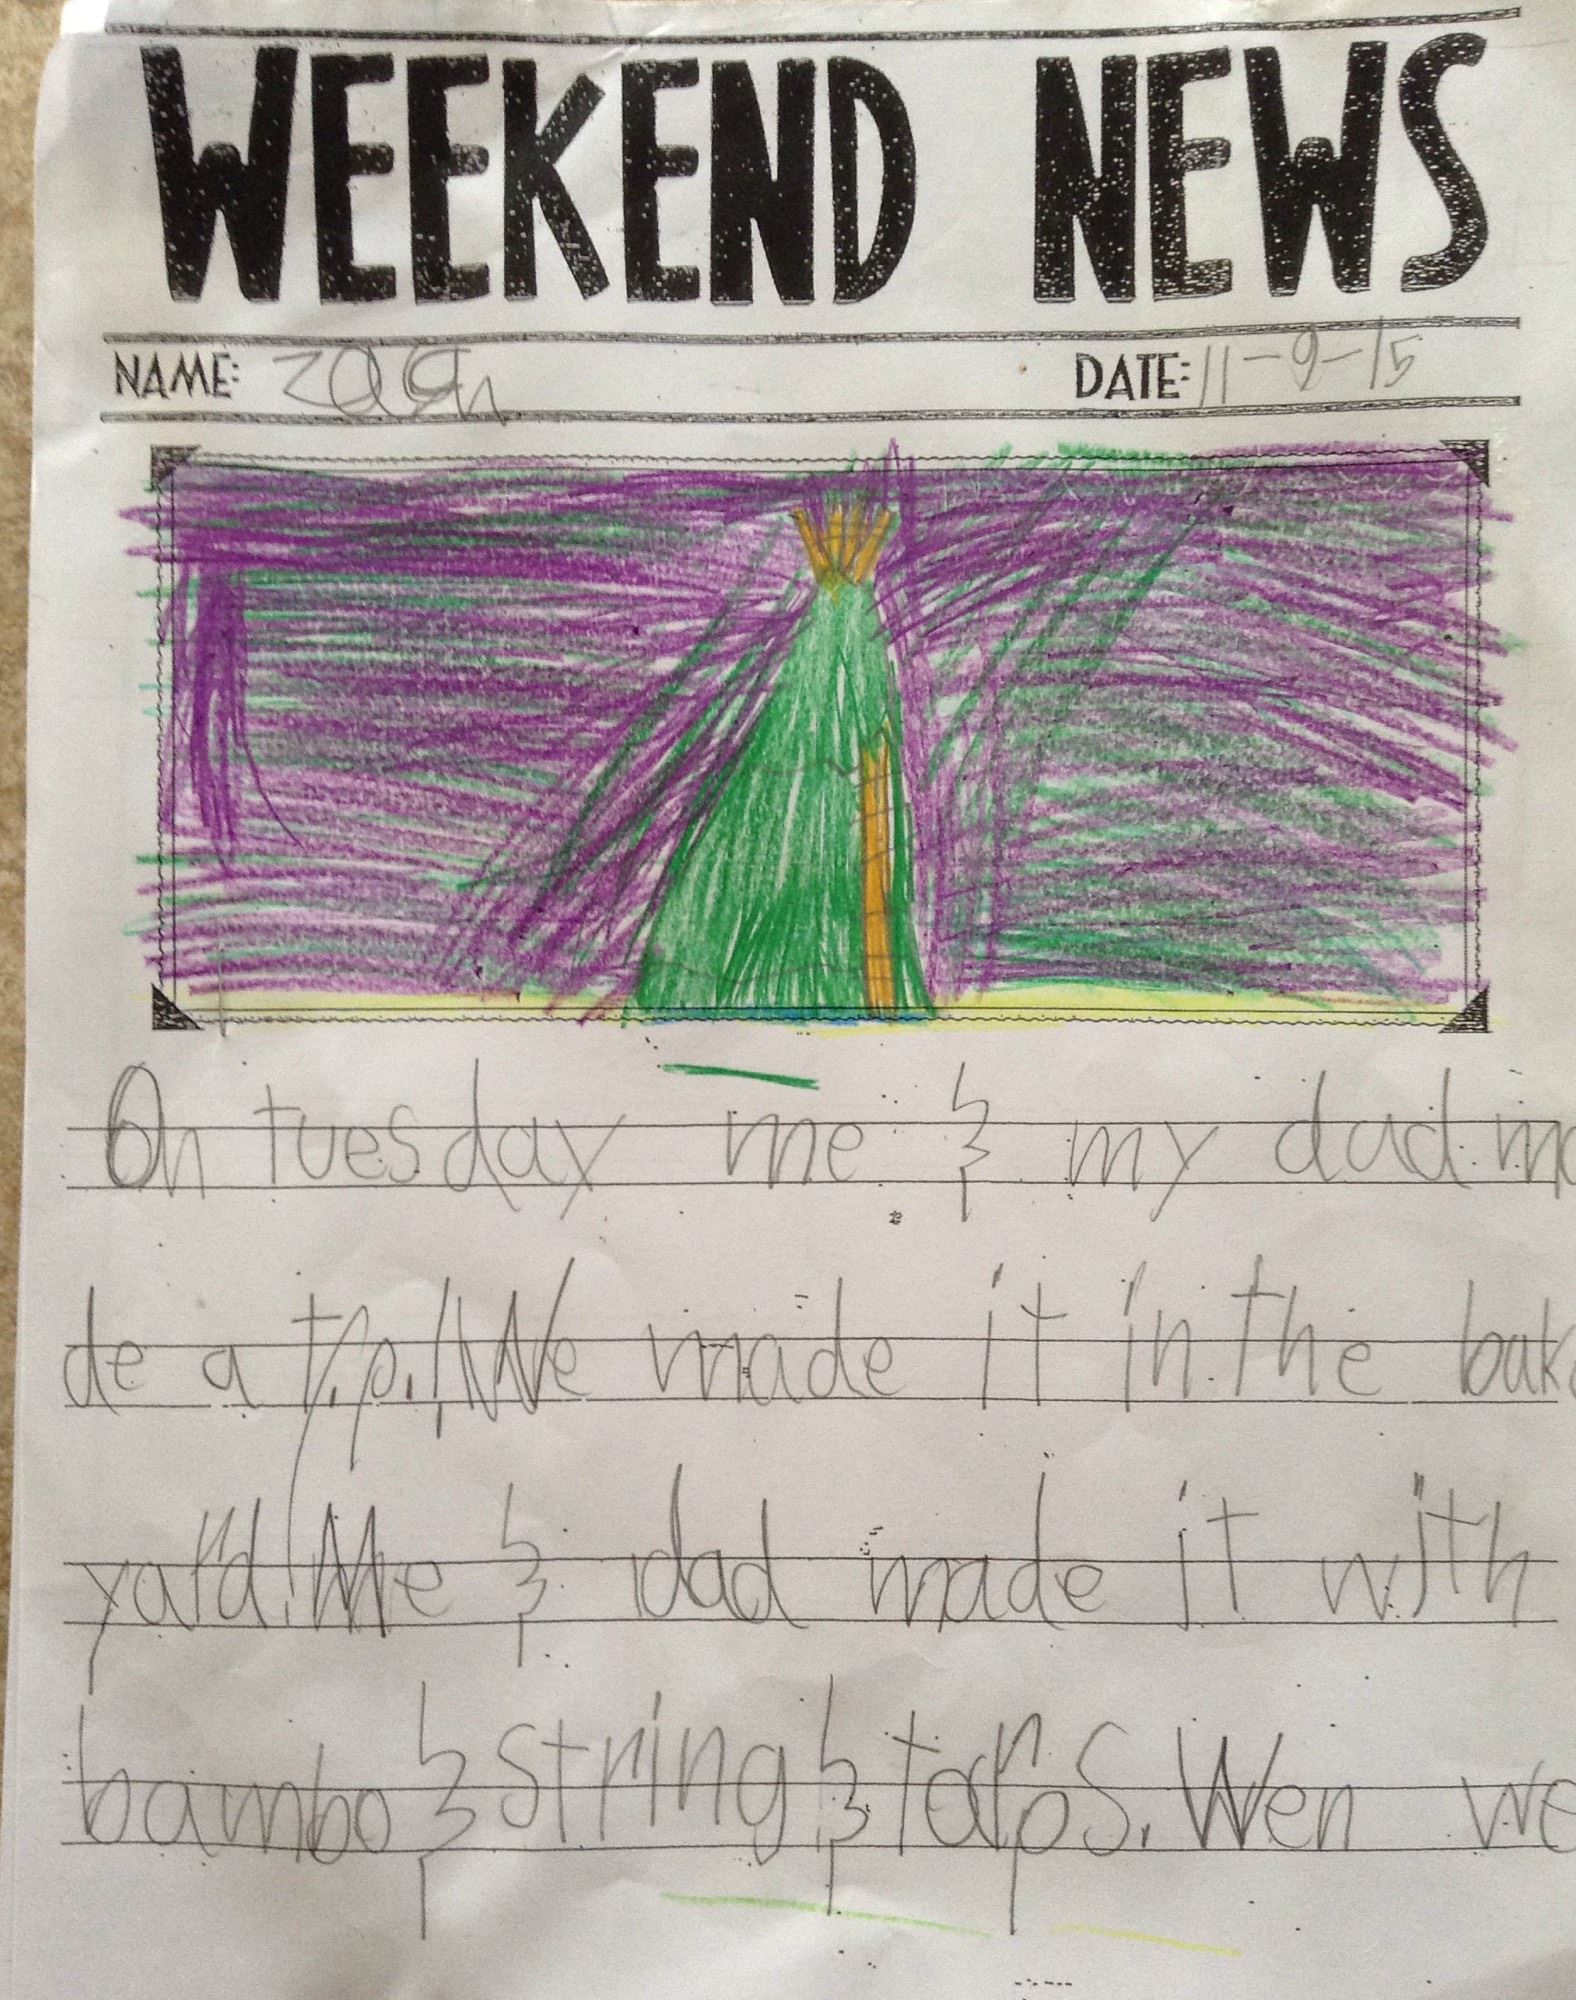 WEEKEND NEWS
NAME: zach DATE: 11-9-15
On tuesday me & my dad ma
de a t.p.! We made it in the bak
yard! Me & dad made it with
bambo & string & tarps. Wen we